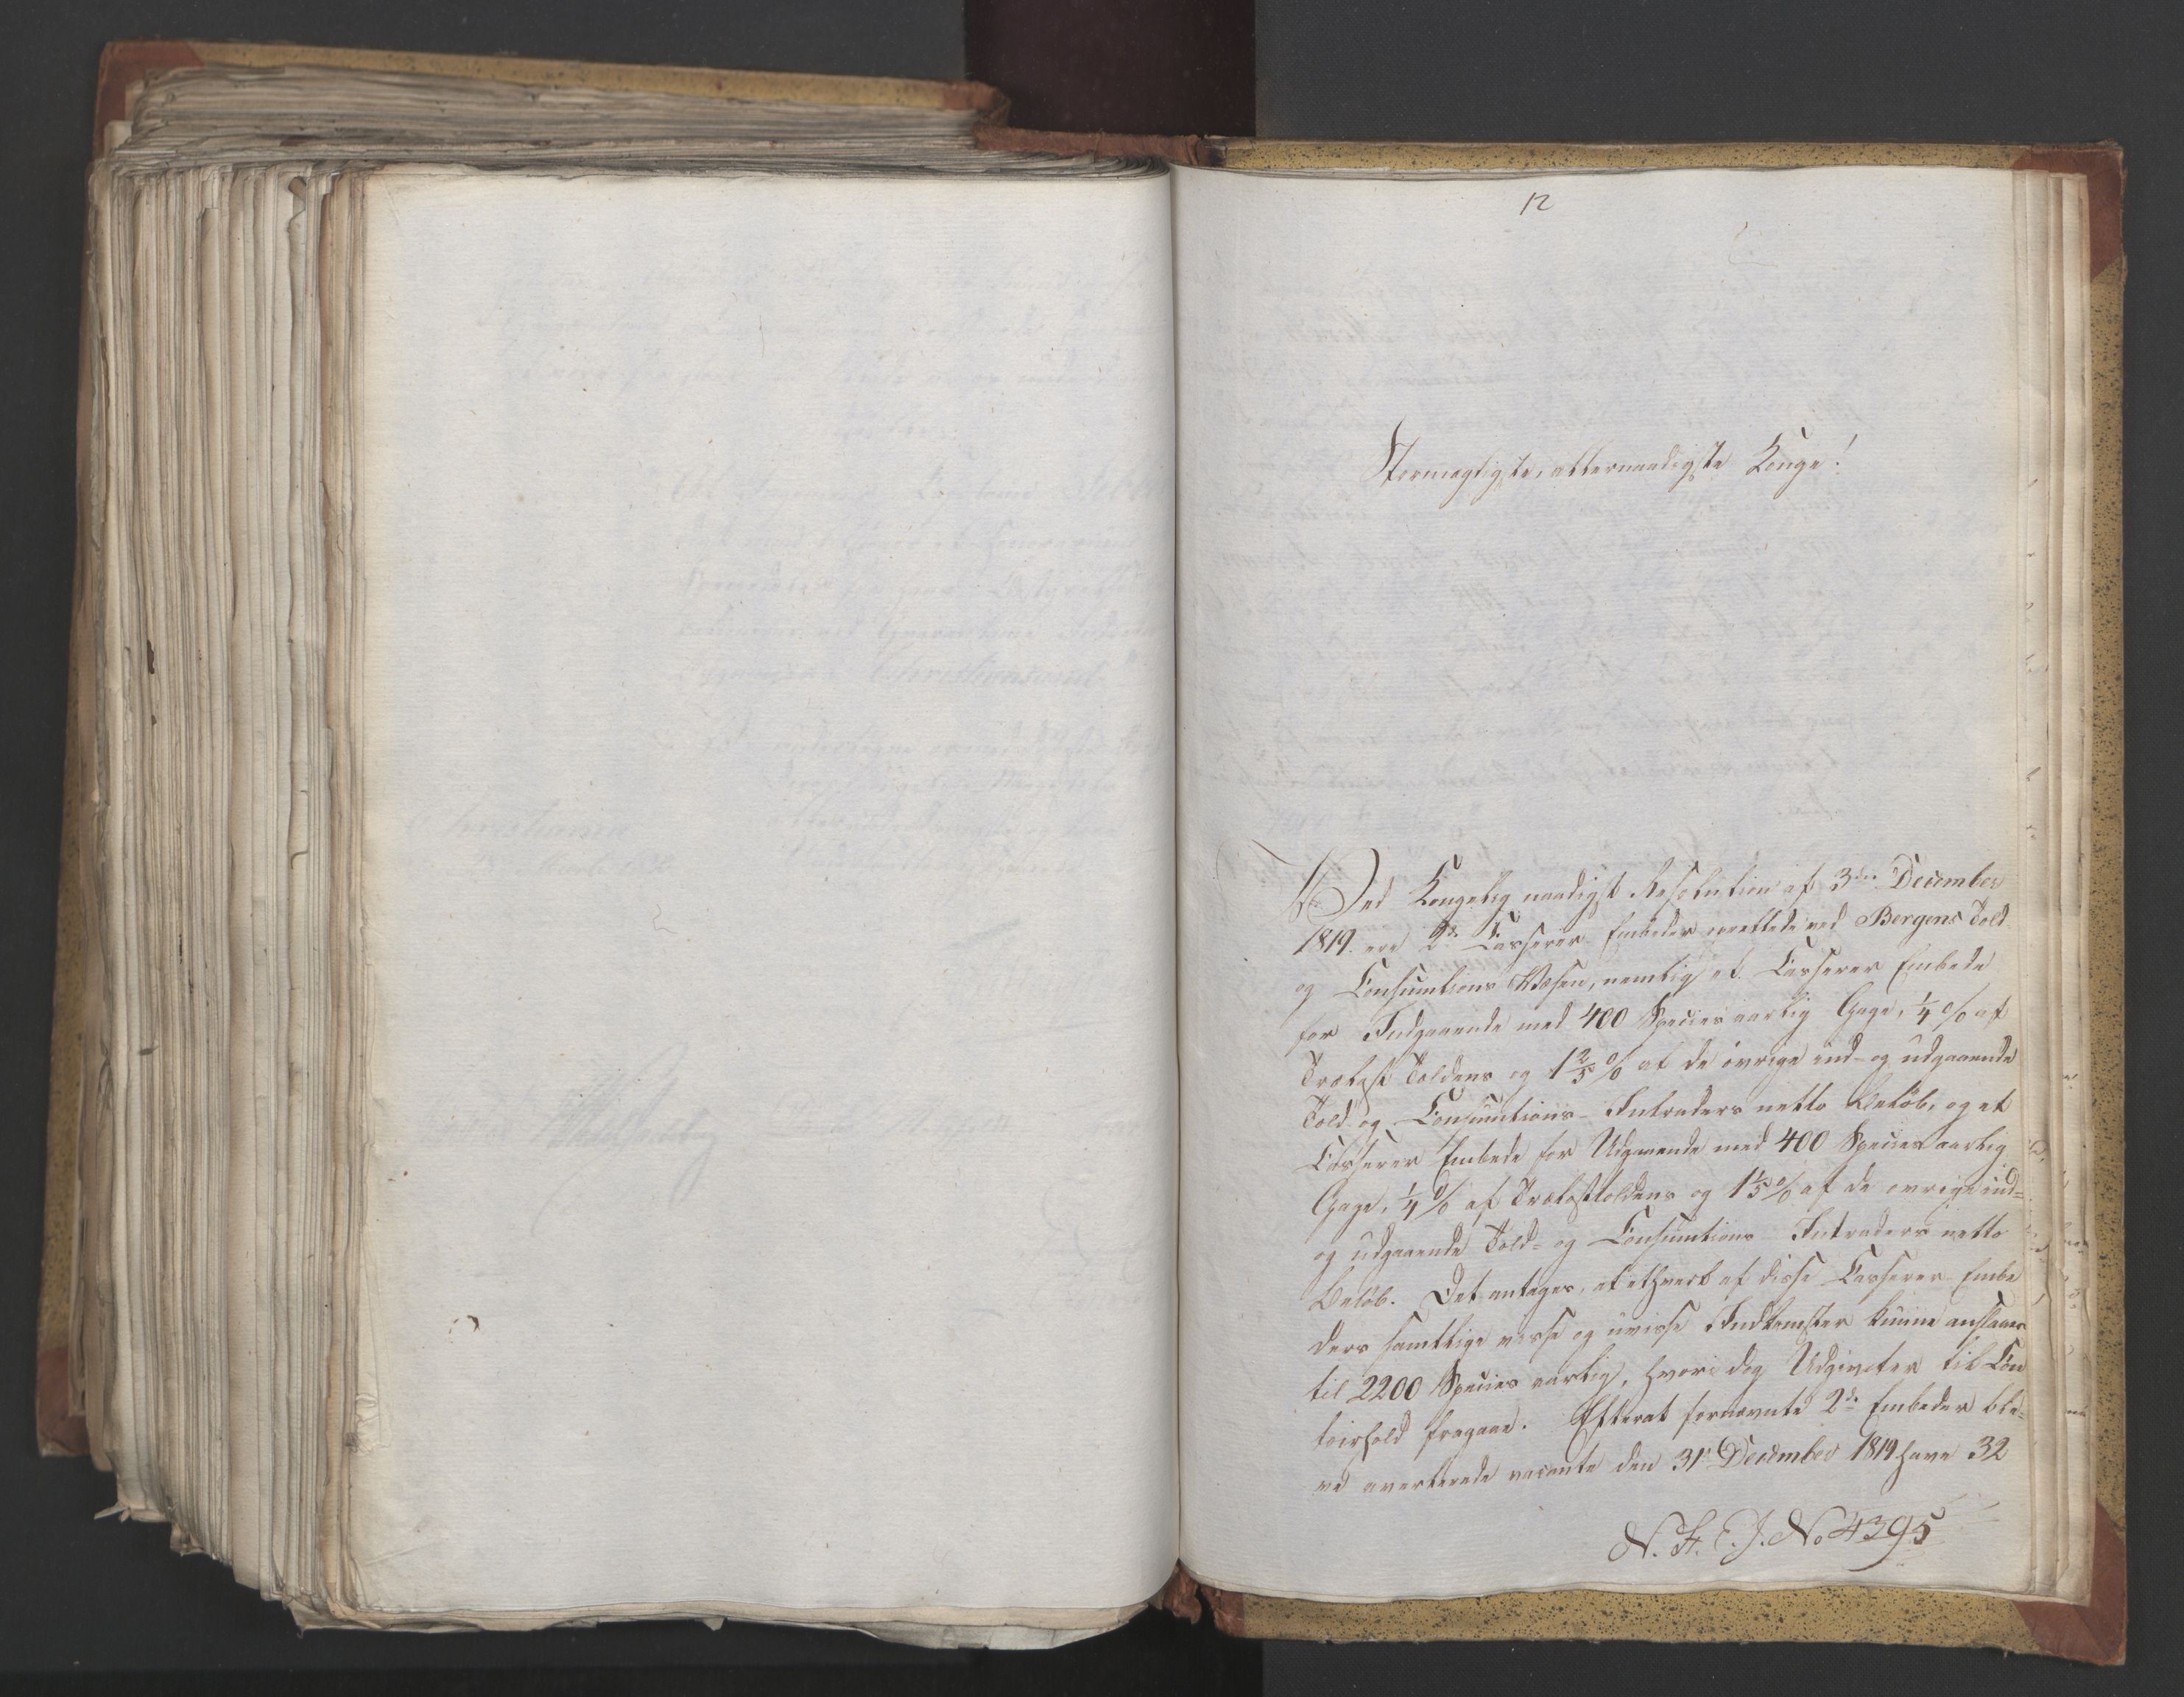 12
Stormægtigste, allernaadigste Konge!
Ved Kongelig naadigst Resolution af 3die December
1819 ere 2de Casserer Embeder oprettede ved Bergens Told
og Consumtions Væsen, nemlig et Casserer Embede
for Indgaaende med 400 Species aarlig Gage, ¼ % af
Trælast Toldens og 1⅖ % af de övrige ind- og udgaaende
Told- og Consumtions- Intraders netto Belöb, og et
Casserer Embede for Udgaaende med 400 Species aarlig
Gage, ¼ % af Trælasttoldens og 1⅕ % af de ovrige ind-
og udgaaende Told- og Consumtions Intraders netto
Belöb. Det antages, at ethvert af disse Casserer Embe
ders samtlige visse og uvisse Indkomster kunne anslaaes
til 2200 Species aarlig, hvori dog Udgivter til Con
toirhold fragaae. Efterat fornævnte 2de Embeder ble-
ve averterede vacante den 31te December 1819 have 32
N. F. C. J. No 4395